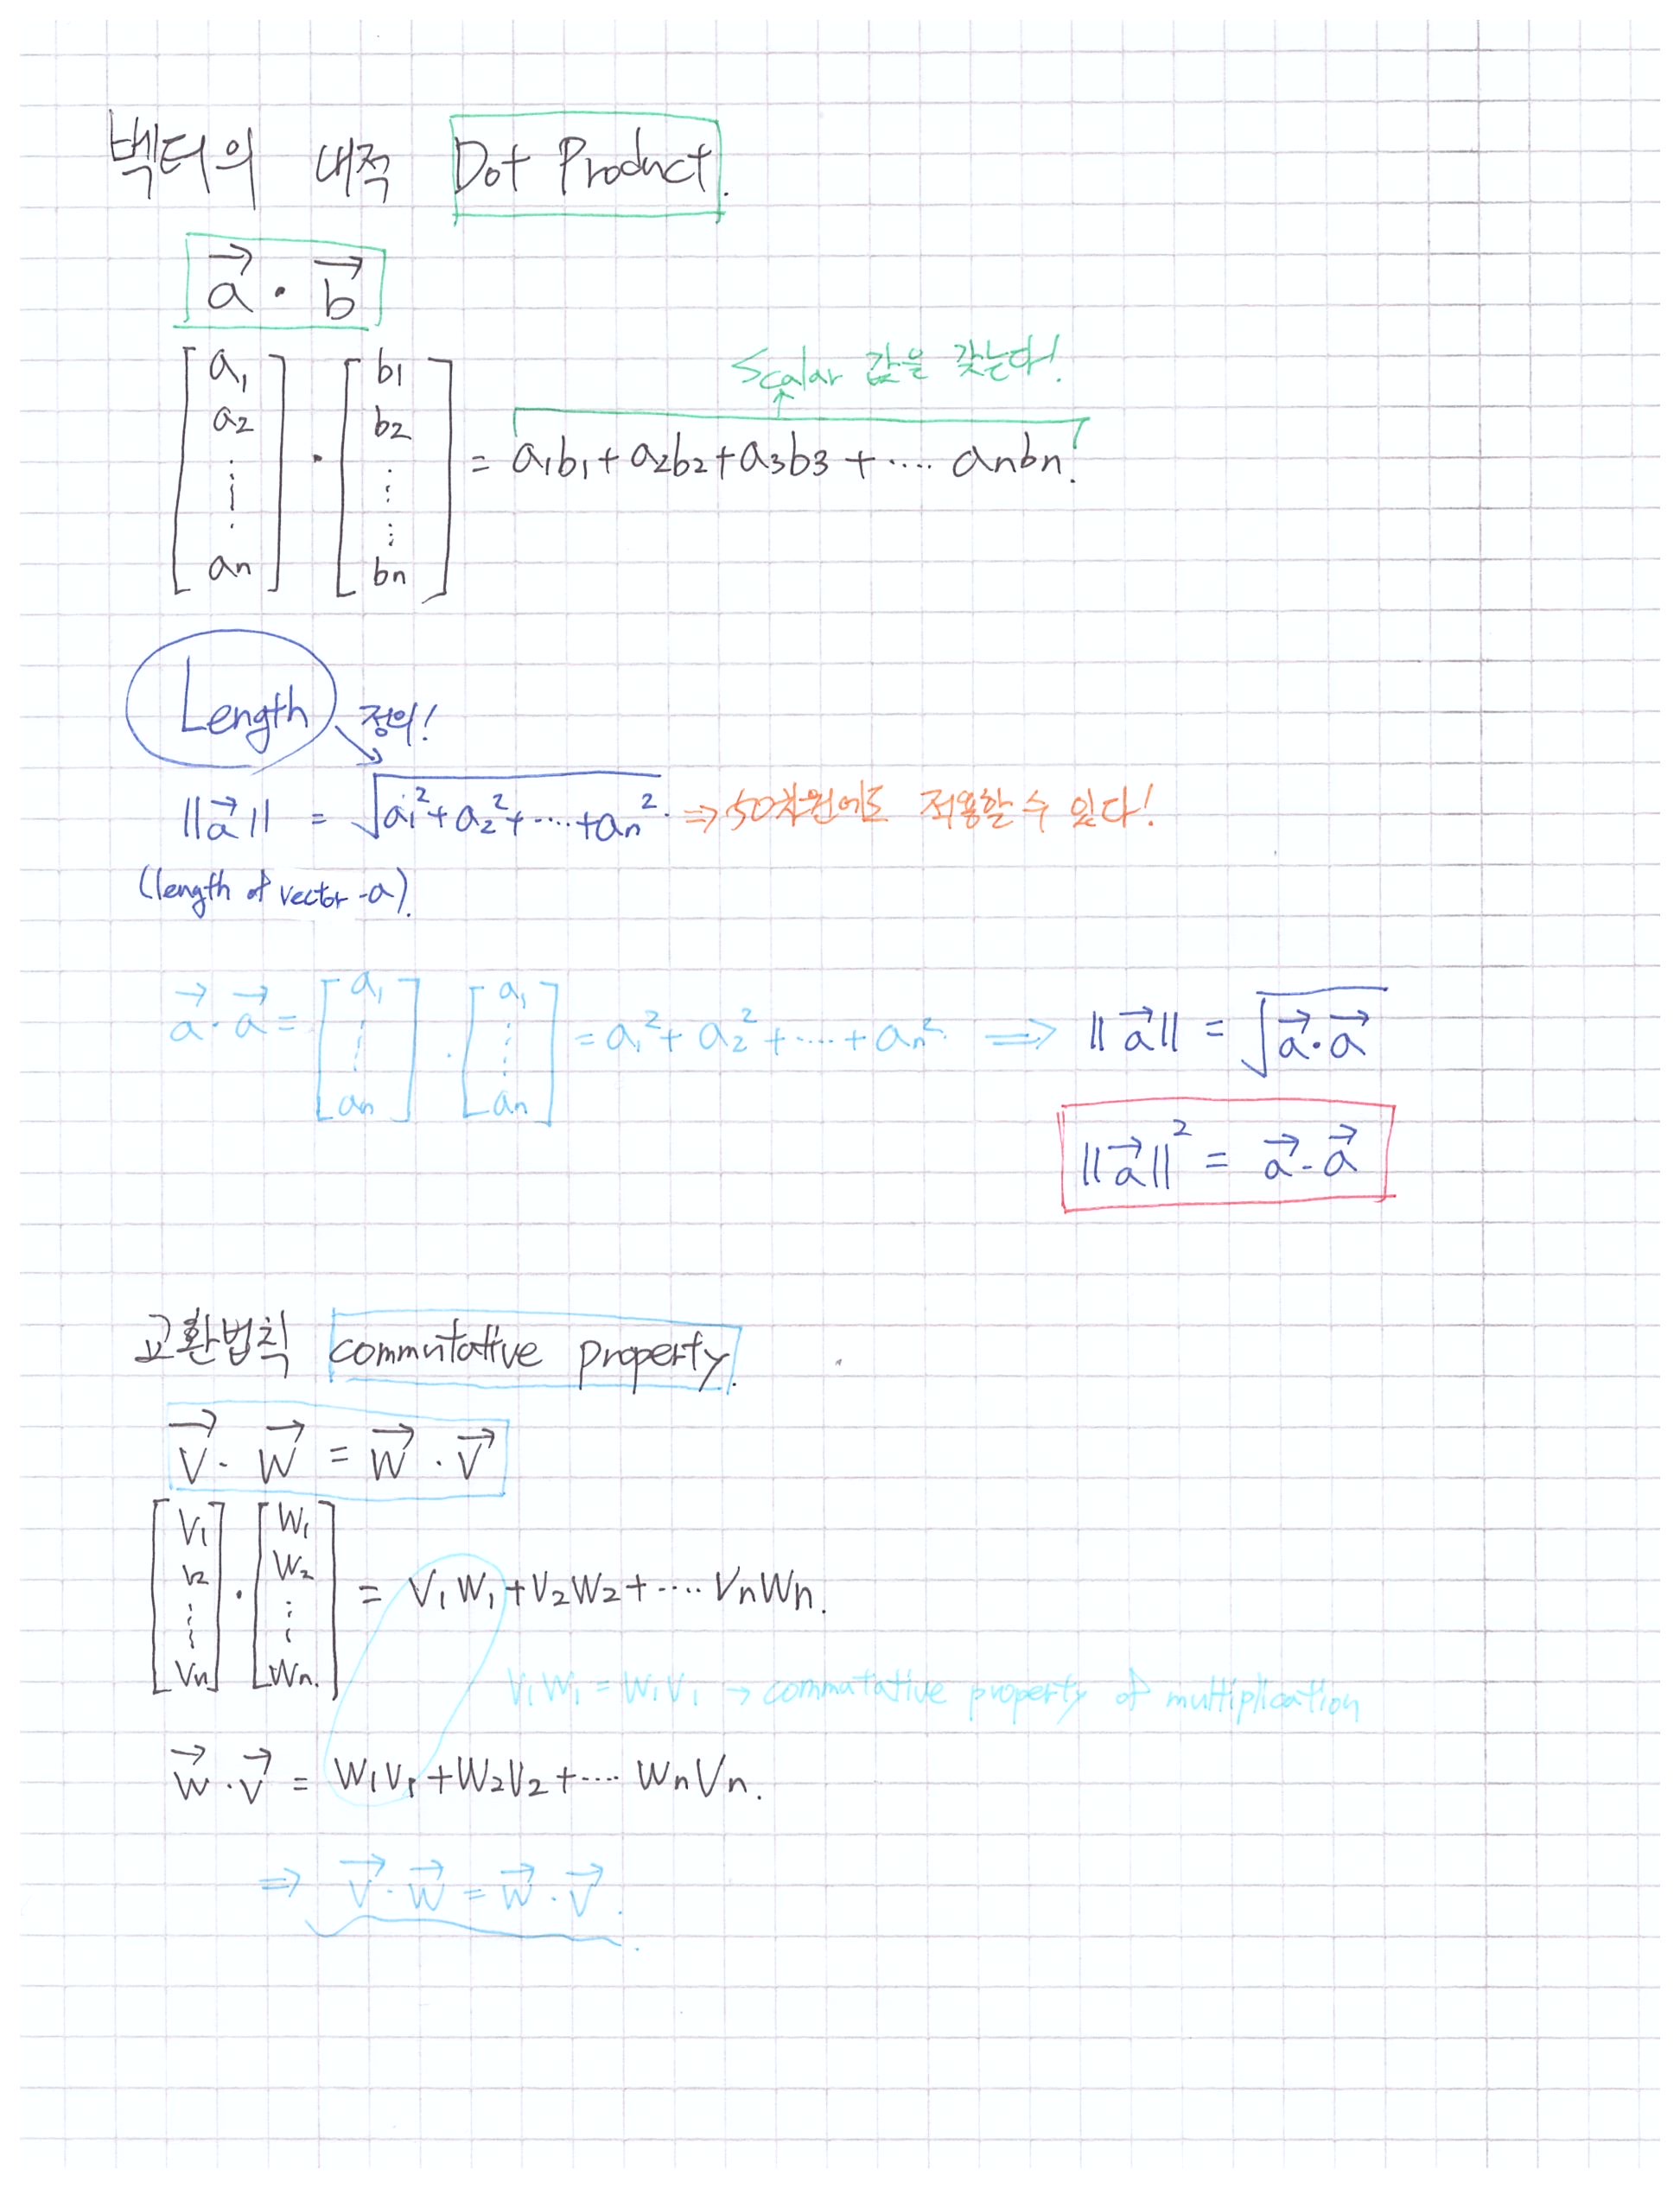 벡터의 내적 Dot Product.
a⃗ · b⃗
Scalar 값을 갖는다!
[a₁ a₂ ⋮ aₙ] · [b₁ b₂ ⋮ bₙ] = a₁b₁ + a₂b₂ + a₃b₃ + .... aₙbₙ.
Length 정의!
||a⃗|| = √(a₁² + a₂² + .... + aₙ²) ⇒ 50차원에도 적용할 수 있다!
(length of vector -a).
a⃗ · a⃗ = [a₁ ⋮ aₙ] · [a₁ ⋮ aₙ] = a₁² + a₂² + .... + aₙ² ⇒ ||a⃗|| = √(a⃗ · a⃗)
||a⃗||² = a⃗ · a⃗
교환법칙 commutative property.
v⃗ · w⃗ = w⃗ · v⃗
[v₁ v₂ ⋮ vₙ] · [w₁ w₂ ⋮ wₙ] = v₁w₁ + v₂w₂ + .... vₙwₙ.
v₁w₁ = w₁v₁ → commutative property of multiplication
w⃗ · v⃗ = w₁v₁ + w₂v₂ + .... wₙvₙ.
⇒ v⃗ · w⃗ = w⃗ · v⃗.